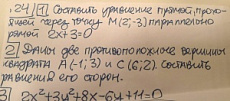 24 1 Составить уравнение прямой, прохо-
ящей через точку M(2;-3) параллельно
прямой 2x+3=0
2 Даны две противоположные вершины
квадрата A(-1;3) и C(6;2). Составить
уравнения его сторон.
3 2x²+3y²+8x-6y+11=0